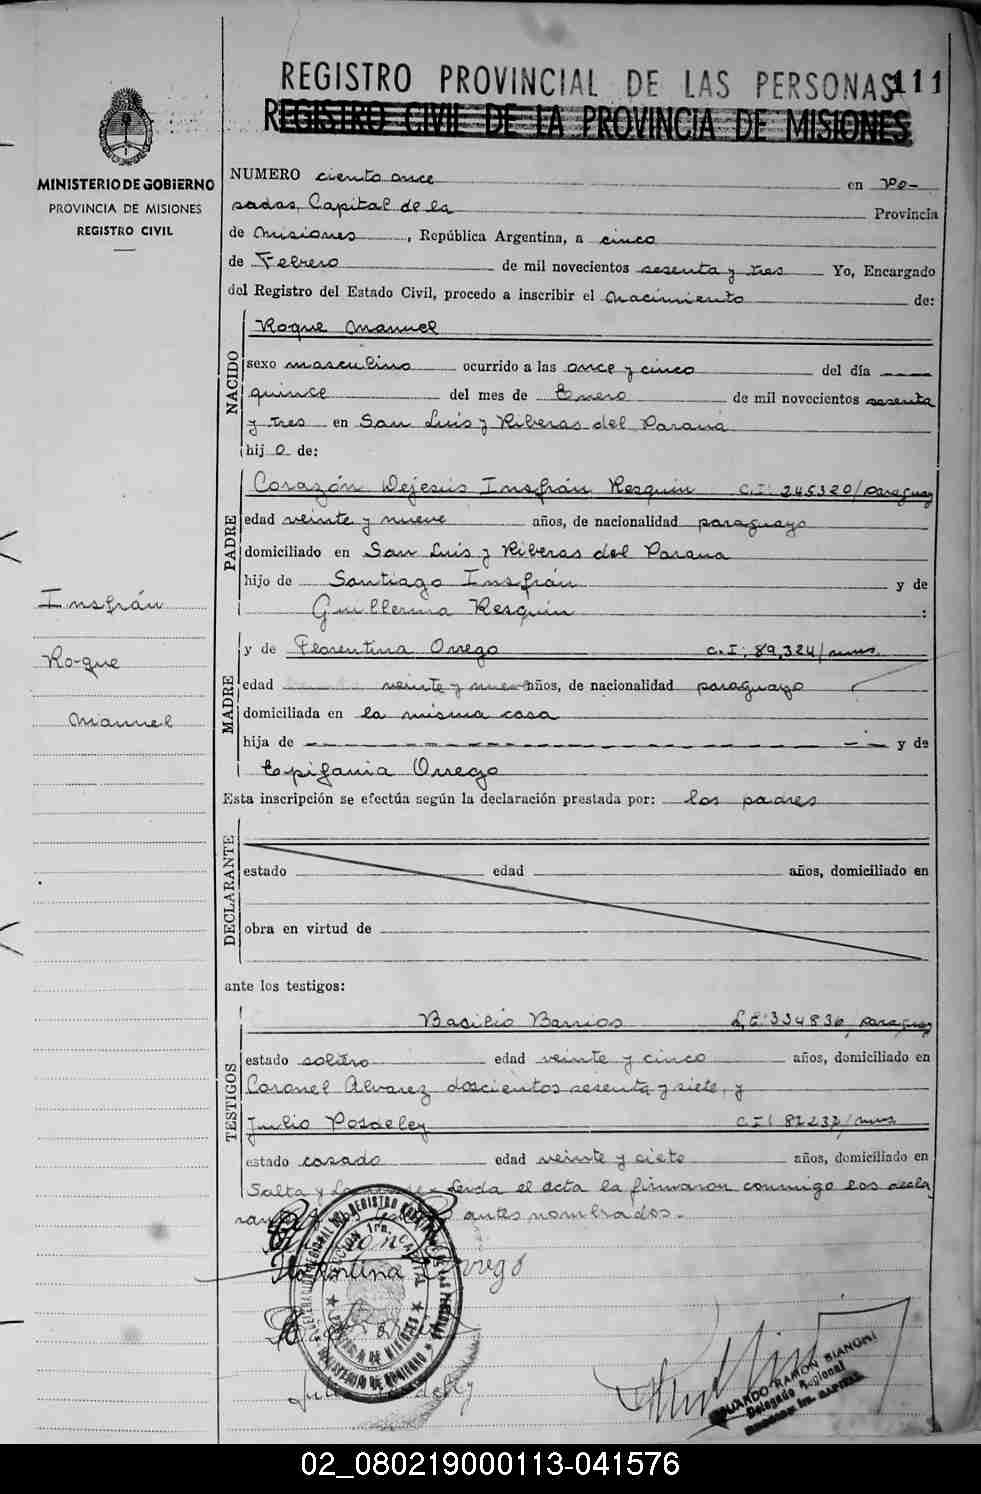 REGISTRO PROVINCIAL DE LAS PERSONAS 111
REGISTRO CIVIL DE LA PROVINCIA DE MISIONES
MINISTERIO DE GOBIERNO
PROVINCIA DE MISIONES
REGISTRO CIVIL
NUMERO ciento once en Po-
sadas, Capital de la Provincia
de Misiones, República Argentina, a cinco
de Febrero de mil novecientos sesenta y tres Yo, Encargado
del Registro del Estado Civil, procedo a inscribir el Nacimiento de:
NACIDO
Roque Manuel
sexo masculino ocurrido a las once y cinco del día
quince del mes de Enero de mil novecientos sesenta
y tres en San Luis y Riberas del Paraná
hij o de:
PADRE
Corazón Dejesús Insfrán Resquin C.I. 245320/Paraguay
edad veinte y nueve años, de nacionalidad paraguayo
domiciliado en San Luis y Riberas del Parana
hijo de Santiago Insfrán y de
Guillerma Resquin :
Insfrán
Roque
Manuel
MADRE
y de Florentina Orrego C.I. 89,324/mnes.
edad veinte y nueve años, de nacionalidad paraguayo
domiciliada en la misma casa
hija de y de
Epifania Orrego
Esta inscripción se efectúa según la declaración prestada por: los padres
DECLARANTE
estado edad años, domiciliado en
obra en virtud de
ante los testigos:
TESTIGOS
Basilio Barrios 334836, Paraguay
estado soltero edad veinte y cinco años, domiciliado en
Coronel Alvarez doscientos sesenta y siete, y
Julio Posdeley C.I. 82232/mnes
estado casado edad veinte y siete años, domiciliado en
Salta y Leida el acta la firmaron conmigo los decla
antes nombrados.-
EDUARDO RAMON BIANCHI
Delegado Regional
02_080219000113-041576